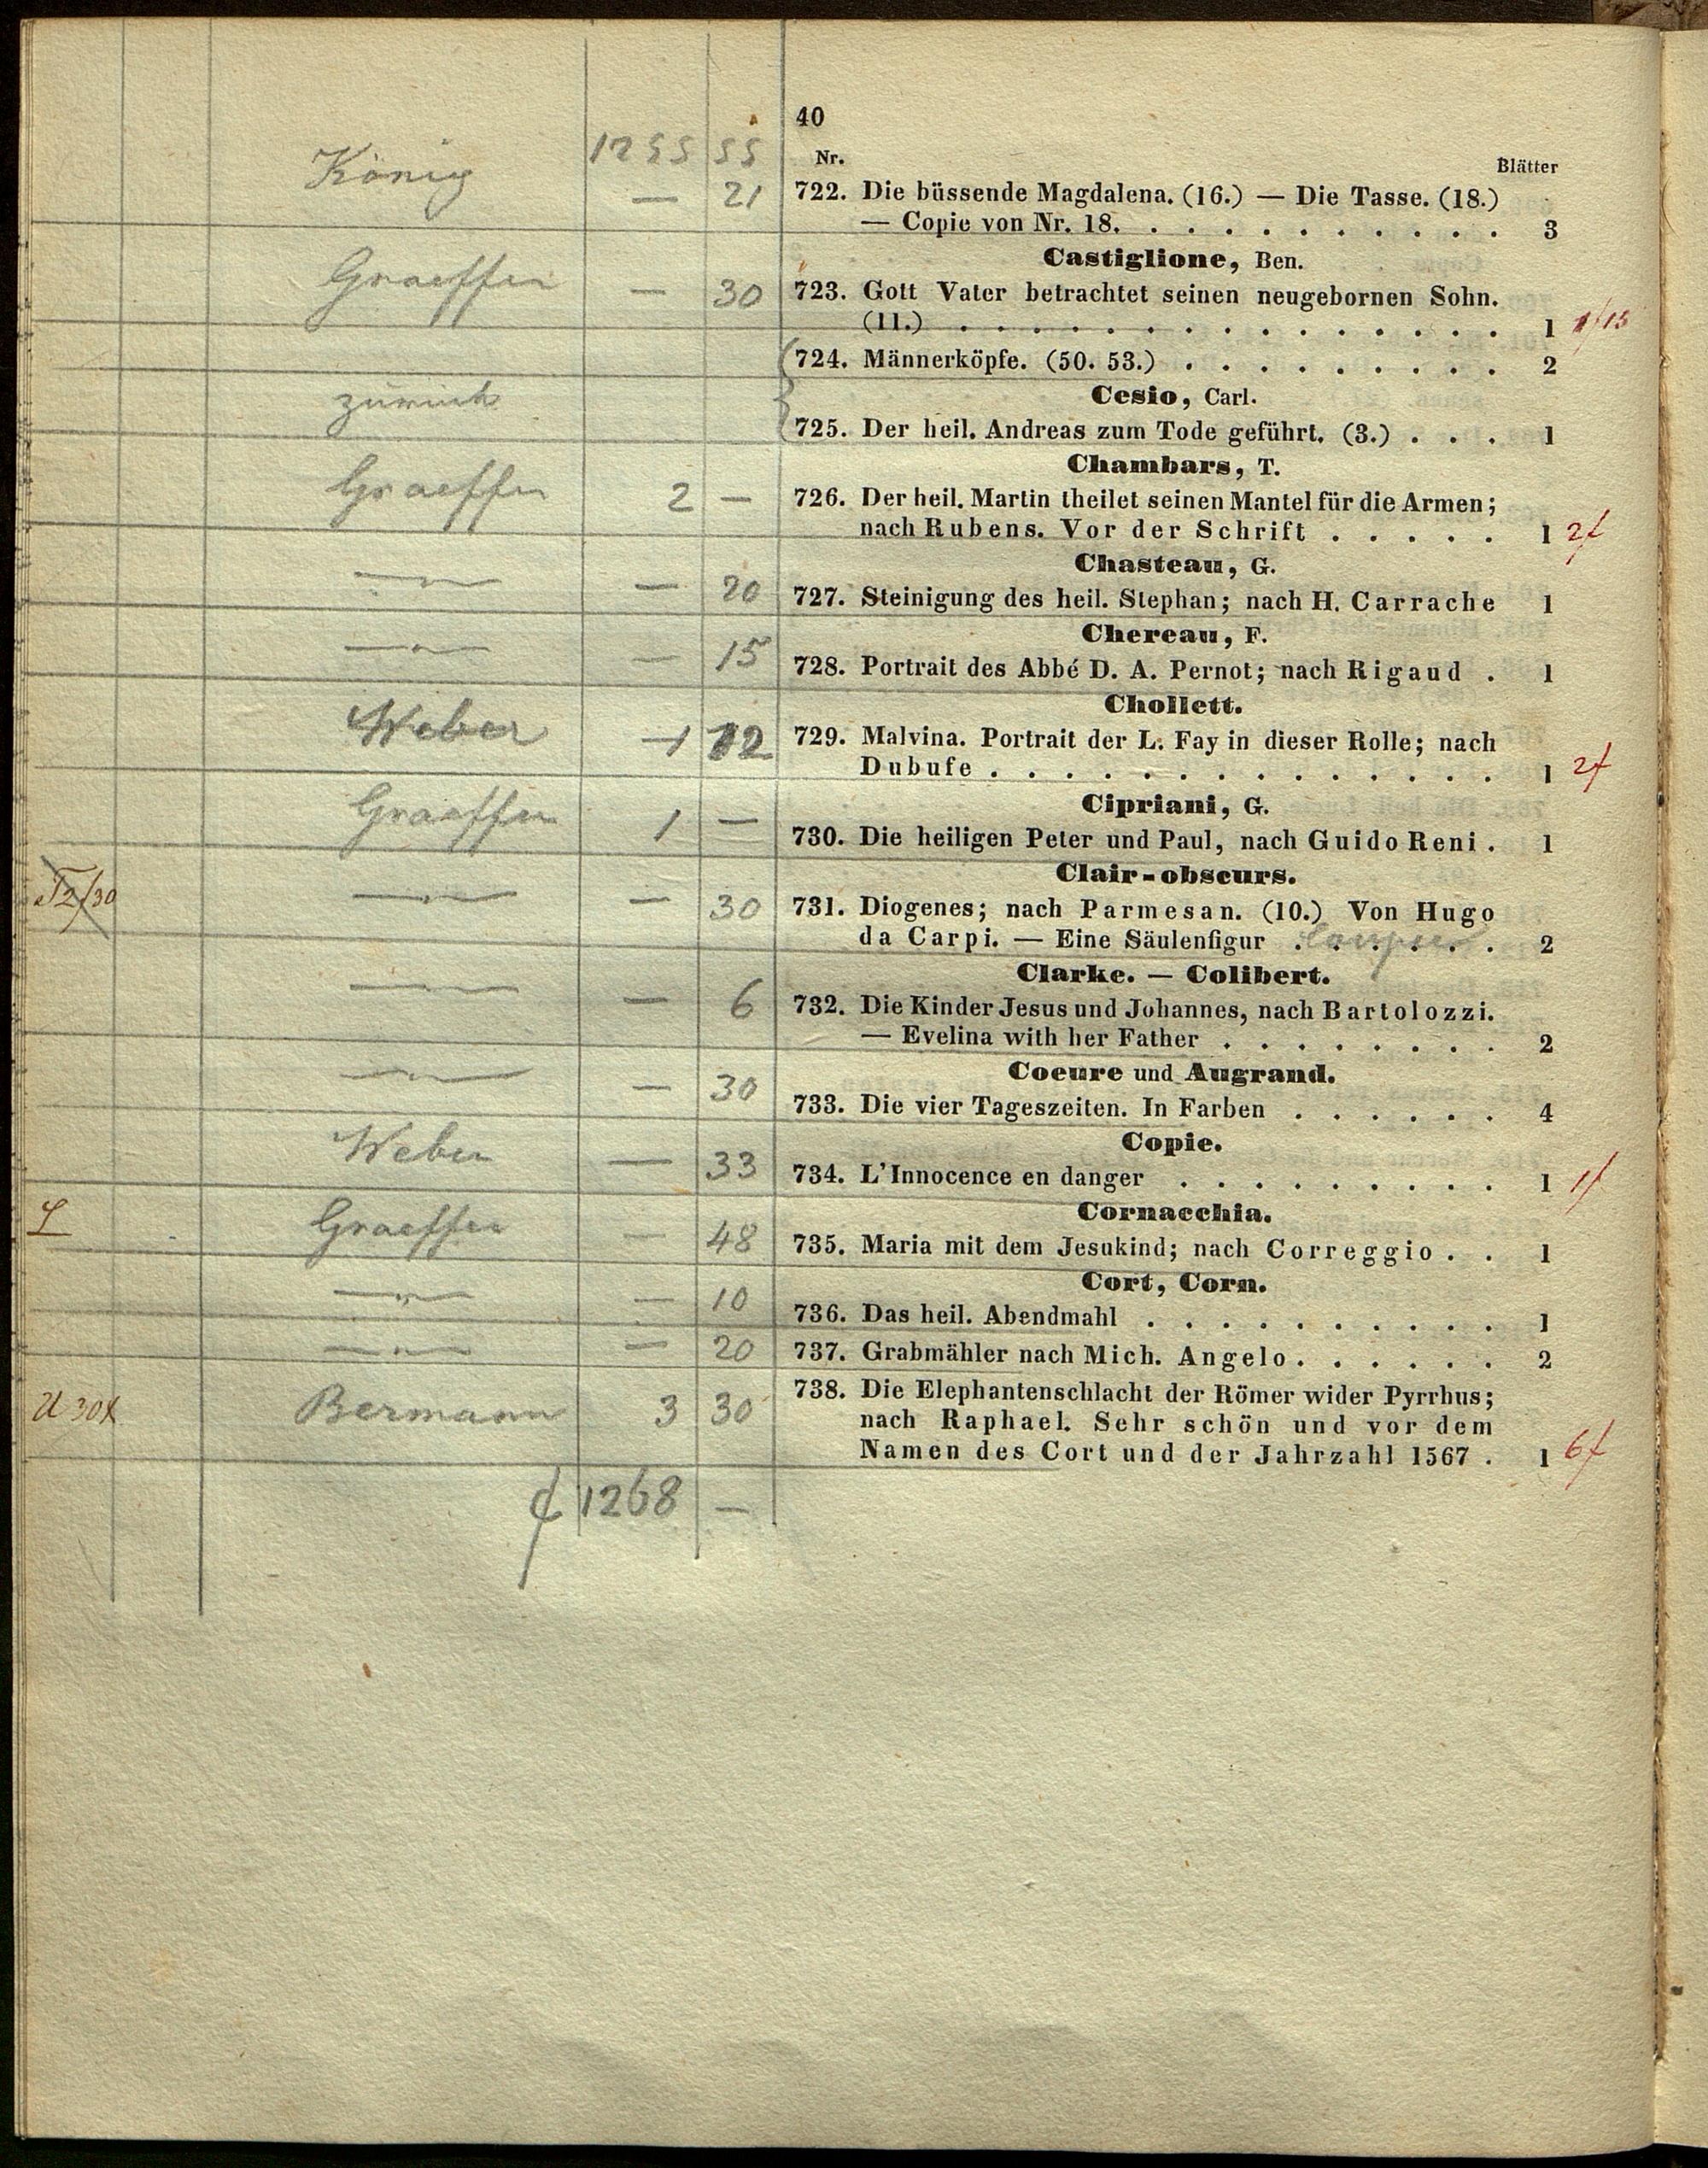 40
1255 55
Nr. Blätter
König — 21 722. Die büssende Magdalena. (16.) — Die Tasse. (18.)
— Copie von Nr. 18. . . . . . . . . . . 3
Castiglione, Ben.
Graeffer — 30 723. Gott Vater betrachtet seinen neugebornen Sohn.
(11.) . . . . . . . . . . . . . . . 1
724. Männerköpfe. (50. 53.) . . . . . . . . . 2
zurück Cesio, Carl.
725. Der heil. Andreas zum Tode geführt. (3.) . . . 1
Chambars, T.
Graeffer 2 — 726. Der heil. Martin theilet seinen Mantel für die Armen;
nach Rubens. Vor der Schrift . . . . . 1 2f
Chasteau, G.
—"— — 20 727. Steinigung des heil. Stephan; nach H. Carrache 1
Chereau, F.
—"— — 15 728. Portrait des Abbé D. A. Pernot; nach Rigaud . 1
Chollett.
Weber 1 12 729. Malvina. Portrait der L. Fay in dieser Rolle; nach
Dubufe . . . . . . . . . . . . . . 1 2f
Cipriani, G.
Graeffer 1 — 730. Die heiligen Peter und Paul, nach Guido Reni . 1
Clair-obscurs.
—"— — 30 731. Diogenes; nach Parmesan. (10.) Von Hugo
da Carpi. — Eine Säulenfigur . . . . . . 2
Clarke. — Colibert.
—"— — 6 732. Die Kinder Jesus und Johannes, nach Bartolozzi.
— Evelina with her Father . . . . . . . . 2
Coeure und Augrand.
—"— — 30 733. Die vier Tageszeiten. In Farben . . . . . . 4
Copie.
Weber — 33 734. L'Innocence en danger . . . . . . . . . 1 1f
Cornacchia.
Graeffer — 48 735. Maria mit dem Jesukind; nach Correggio . . 1
Cort, Corn.
—"— — 10 736. Das heil. Abendmahl . . . . . . . . . . 1
—"— — 20 737. Grabmähler nach Mich. Angelo . . . . . . 2
Bermann 3 30 738. Die Elephantenschlacht der Römer wider Pyrrhus;
nach Raphael. Sehr schön und vor dem
Namen des Cort und der Jahrzahl 1567 . 1 6f
f 1268 —